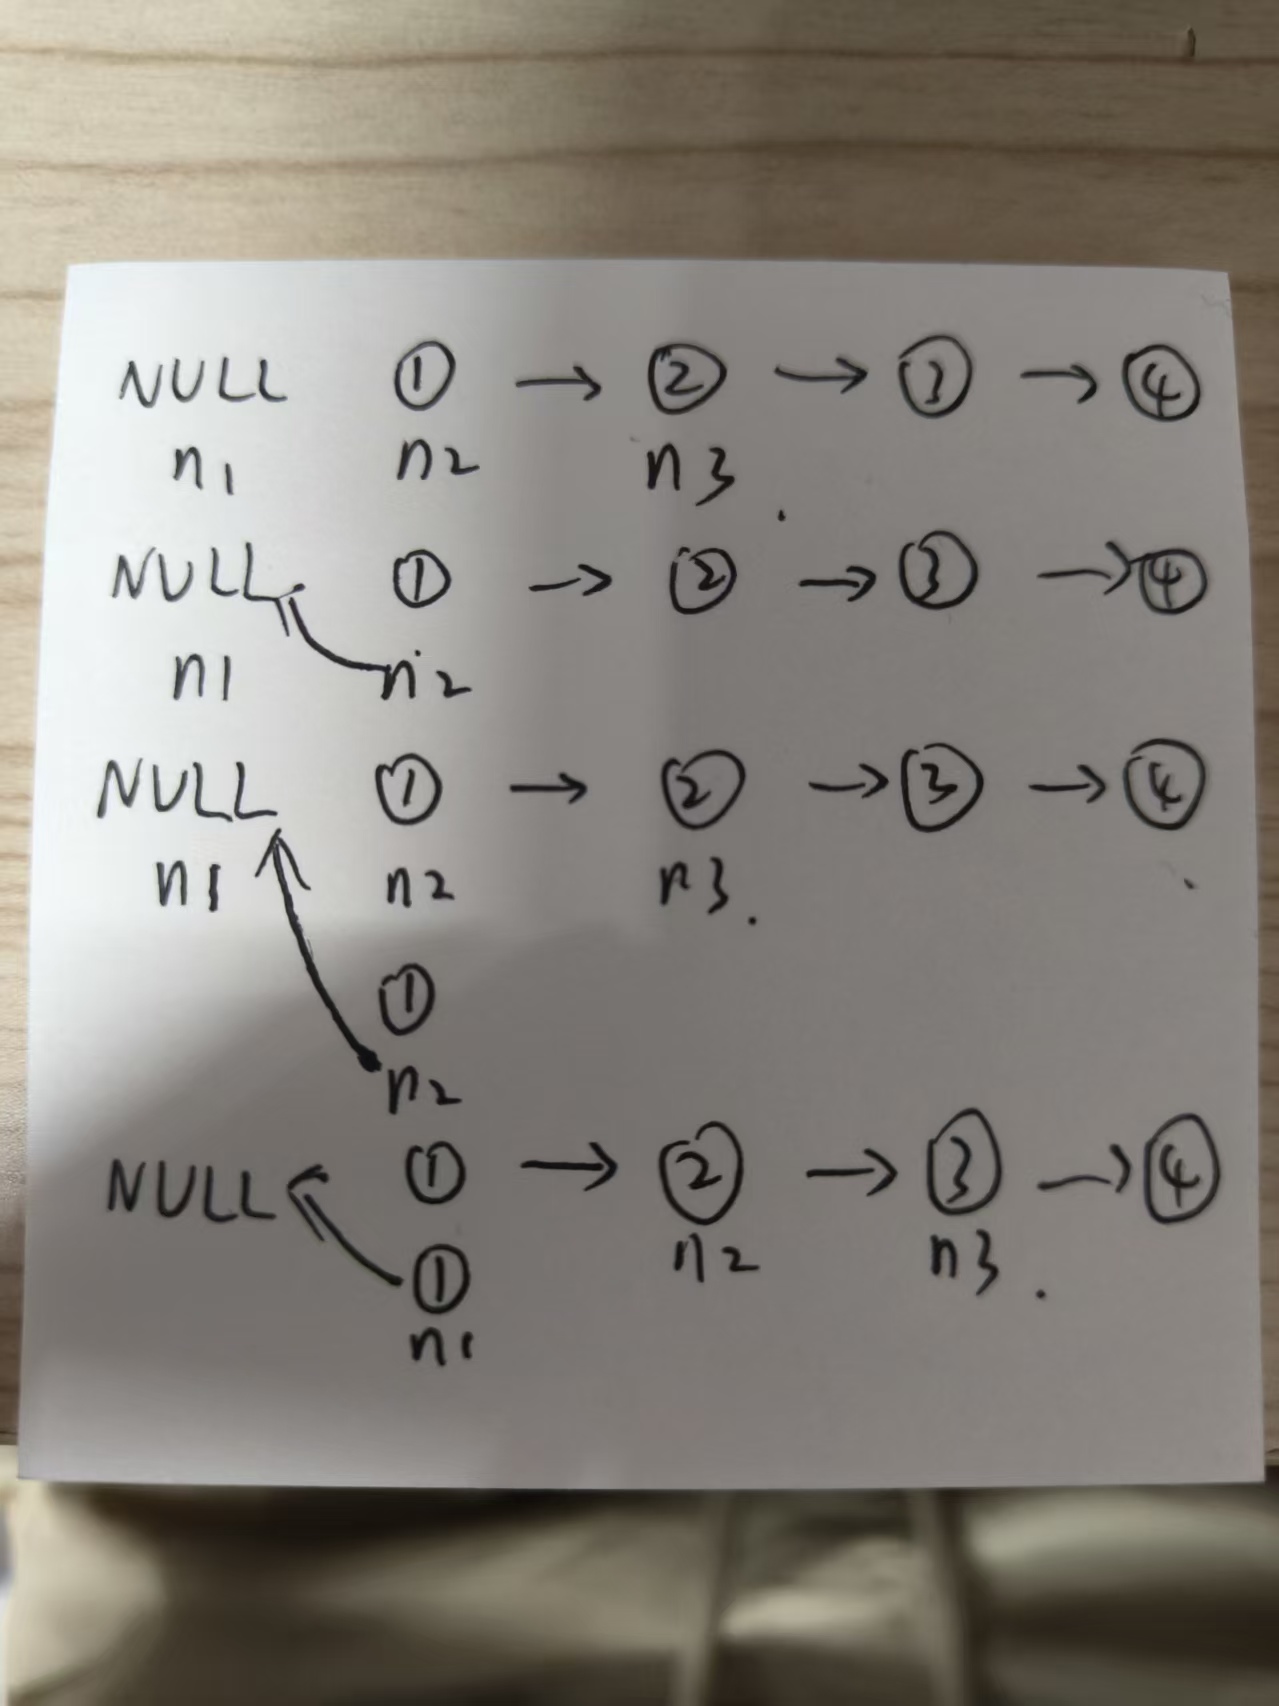 NULL ① → ② → ③ → ④
n1 n2 n3.
NULL ① → ② → ③ → ④
n1 n2
NULL ① → ② → ③ → ④
n1 n2 n3.
①
n2
NULL ① → ② → ③ → ④
n2 n3.
①
n1